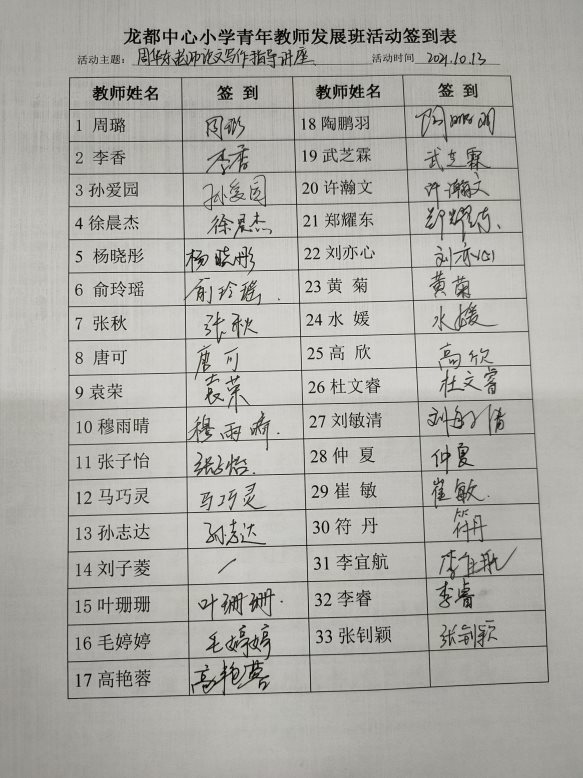 龙都中心小学青年教师发展班活动签到表
活动主题：周华东老师论文写作指导讲座 活动时间 2021.10.13
教师姓名 签 到 教师姓名 签 到
1 周璐 周璐 18 陶鹏羽 陶鹏羽
2 李香 李香 19 武芝霖 武芝霖
3 孙爱园 孙爱园 20 许瀚文 许瀚文
4 徐晨杰 徐晨杰 21 郑耀东 郑耀东.
5 杨晓彤 杨晓彤 22 刘亦心 刘亦心
6 俞玲瑶 俞玲瑶. 23 黄 菊 黄菊
7 张秋 张秋 24 水 媛 水媛
8 唐可 唐可 25 高 欣 高欣
9 袁荣 袁荣 26 杜文睿 杜文睿
10 穆雨晴 穆雨晴. 27 刘敏清 刘敏清
11 张子怡 张子怡. 28 仲 夏 仲夏
12 马巧灵 马巧灵 29 崔 敏 崔敏.
13 孙志达 孙志达 30 符 丹 符丹
14 刘子菱 / 31 李宜航 李宜航
15 叶珊珊 叶珊珊. 32 李睿 李睿
16 毛婷婷 毛婷婷 33 张钊颖 张钊颖
17 高艳蓉 高艳蓉